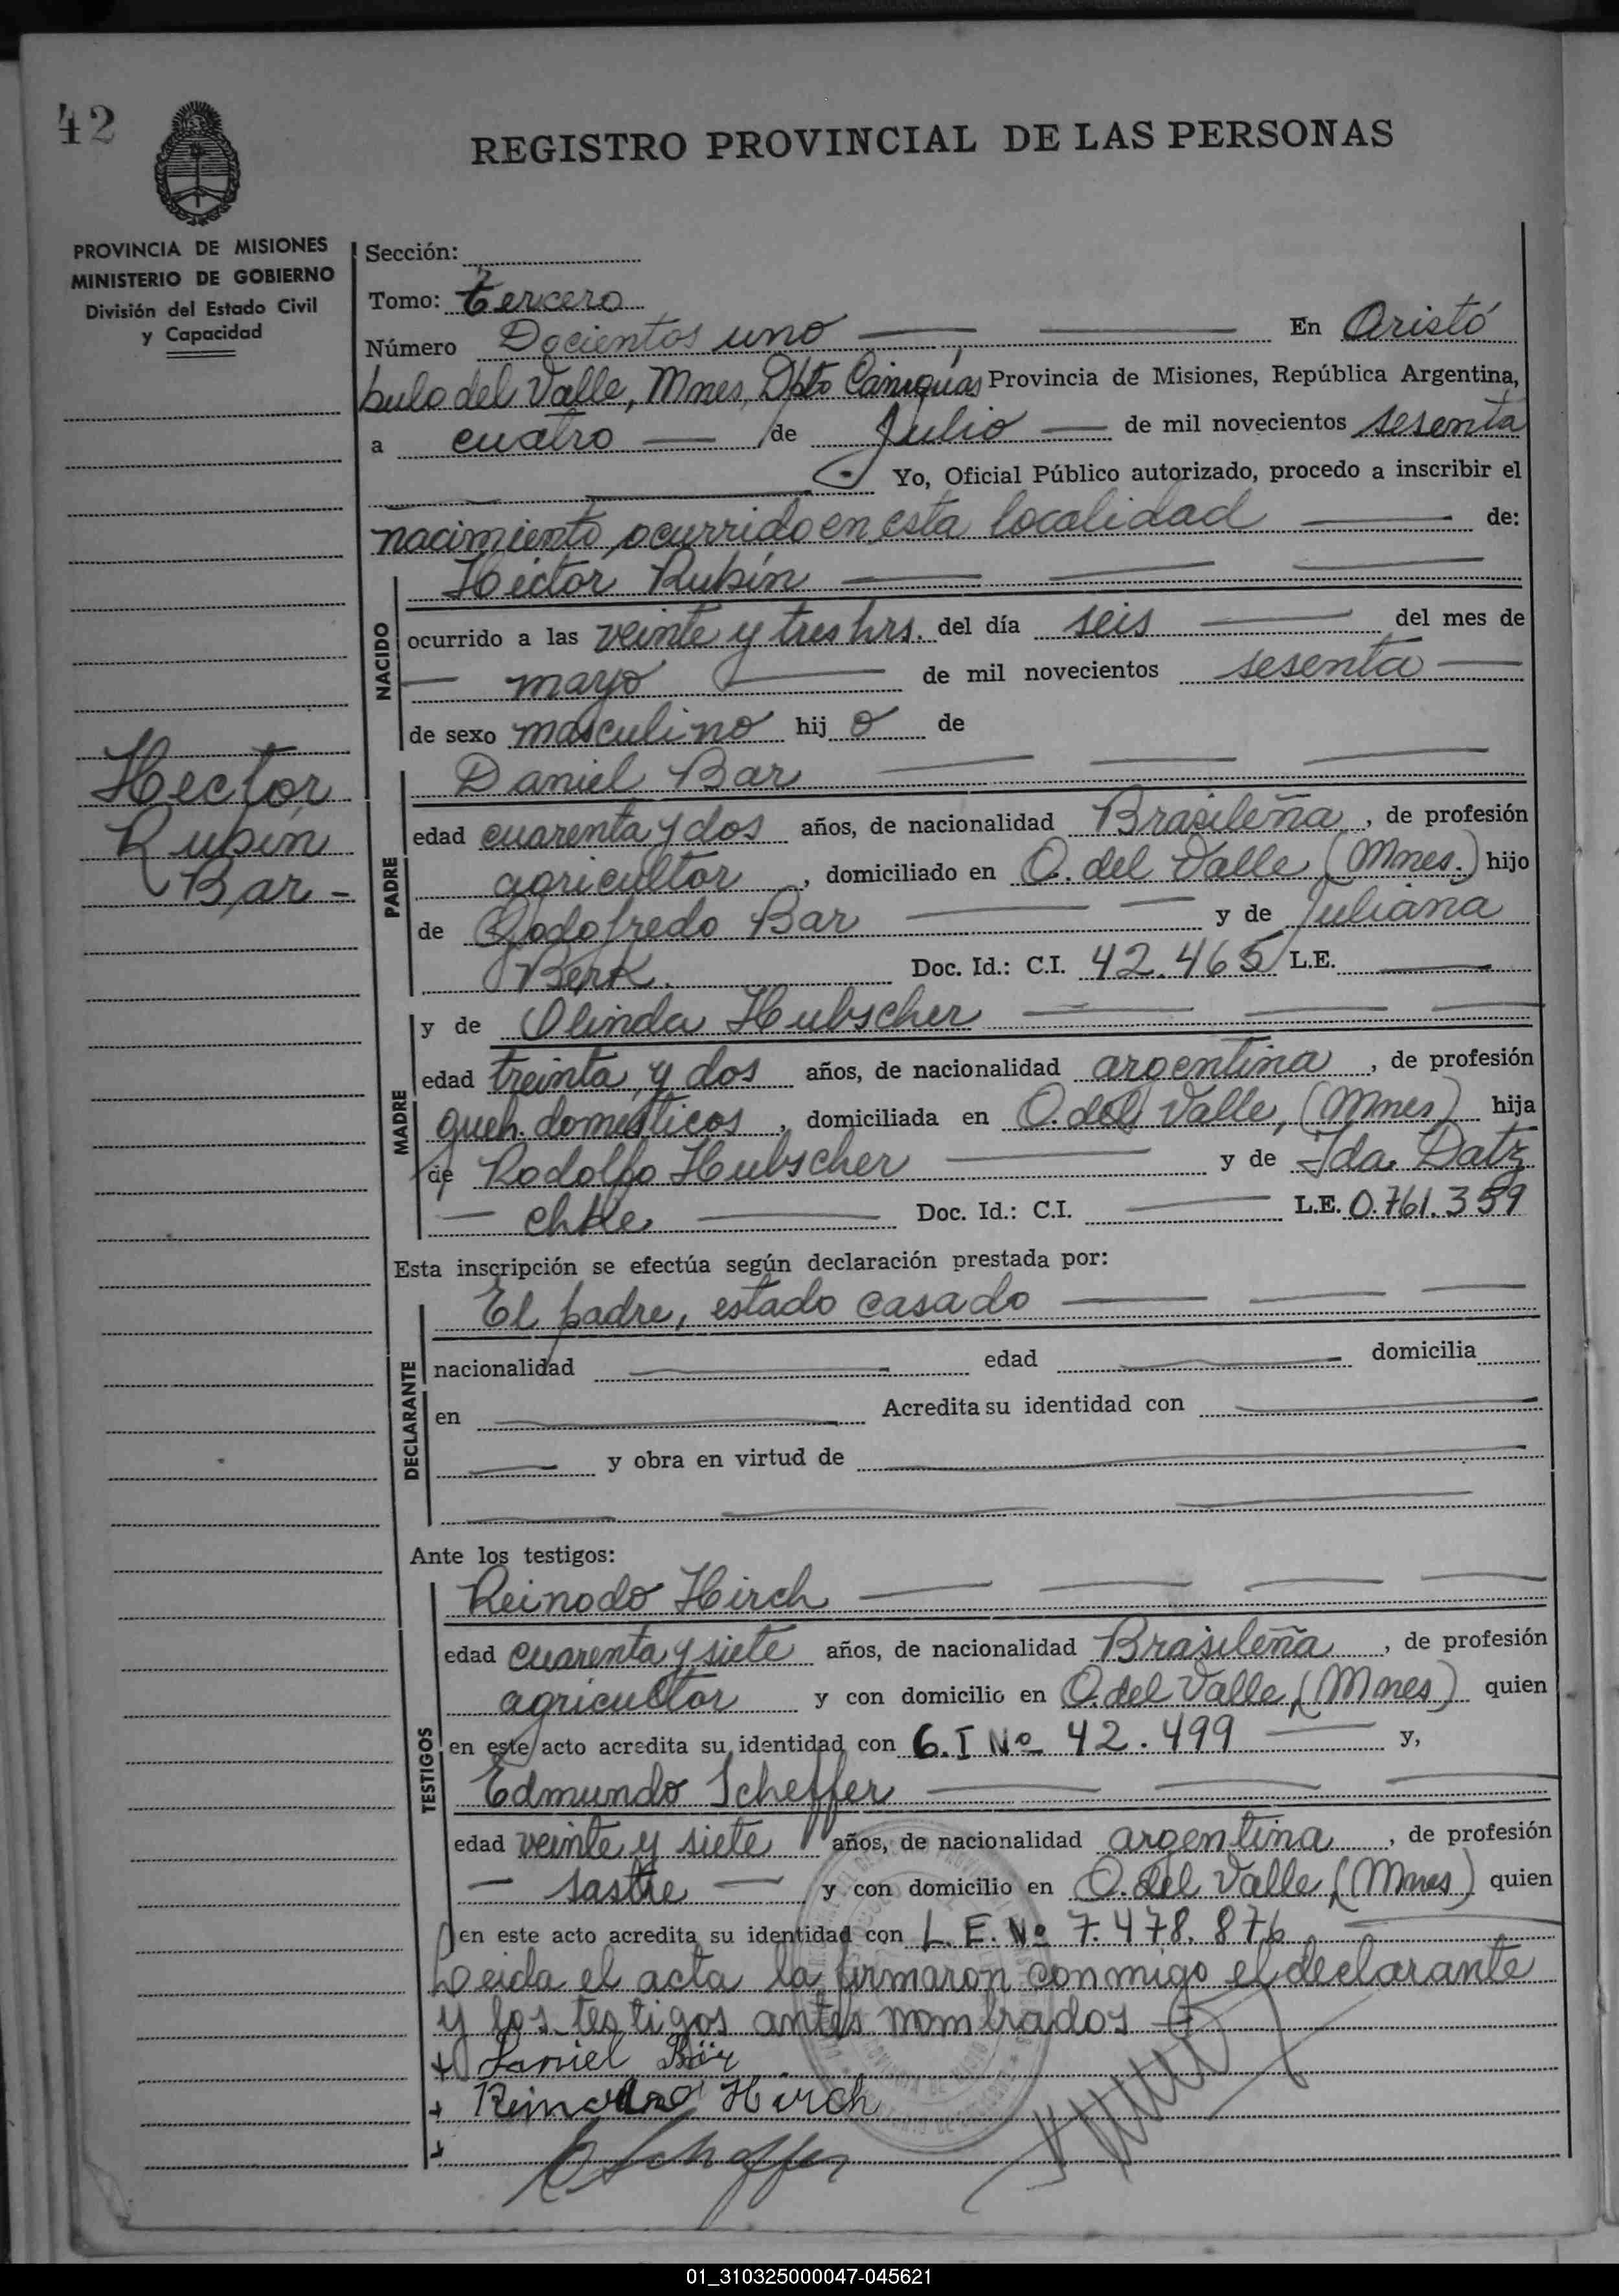 42
REGISTRO PROVINCIAL DE LAS PERSONAS
PROVINCIA DE MISIONES
MINISTERIO DE GOBIERNO
División del Estado Civil
y Capacidad
Sección:
Tomo: tercero
Número Docientos uno En Aristó
bulo del Valle, Mnes, Dpto Cainguás Provincia de Misiones, República Argentina,
a cuatro de Julio de mil novecientos sesenta
Yo, Oficial Público autorizado, procedo a inscribir el
nacimiento ocurrido en esta localidad de:
NACIDO
Héctor Rubín
ocurrido a las veinte y tres hrs. del día seis del mes de
mayo de mil novecientos sesenta
de sexo masculino hij o de
Hector
Rubín
Bar -
PADRE
Daniel Bar
edad cuarenta y dos años, de nacionalidad Brasileña, de profesión
agricultor, domiciliado en O. del Valle, (Mnes.) hijo
de Godofredo Bar y de Juliana
Berk. Doc. Id.: C.I. 42.465 L.E.
MADRE
y de Olinda Hubscher
edad treinta y dos años, de nacionalidad argentina, de profesión
queh. domésticos, domiciliada en O. del Valle, (Mnes) hija
de Rodolfo Hubscher y de Ida Datz
Doc. Id.: C.I. L.E. 0.761.359
Esta inscripción se efectúa según declaración prestada por:
DECLARANTE
El padre, estado casado
nacionalidad edad domicilia
en Acredita su identidad con
y obra en virtud de
Ante los testigos:
TESTIGOS
Reinodo Hirch
edad cuarenta y siete años, de nacionalidad Brasileña, de profesión
agricultor y con domicilio en O. del Valle, (Mnes) quien
en este acto acredita su identidad con C.I No 42.499 y,
Edmundo Scheffer
edad veinte y siete años, de nacionalidad argentina, de profesión
sastre y con domicilio en O. del Valle, (Mnes) quien
en este acto acredita su identidad con L.E. No 7.478.876
Leida el acta la firmaron conmigo el declarante
y los testigos antes nombrados
+ Daniel Bär
+ Hirch
+ E Scheffer
01_310325000047-045621